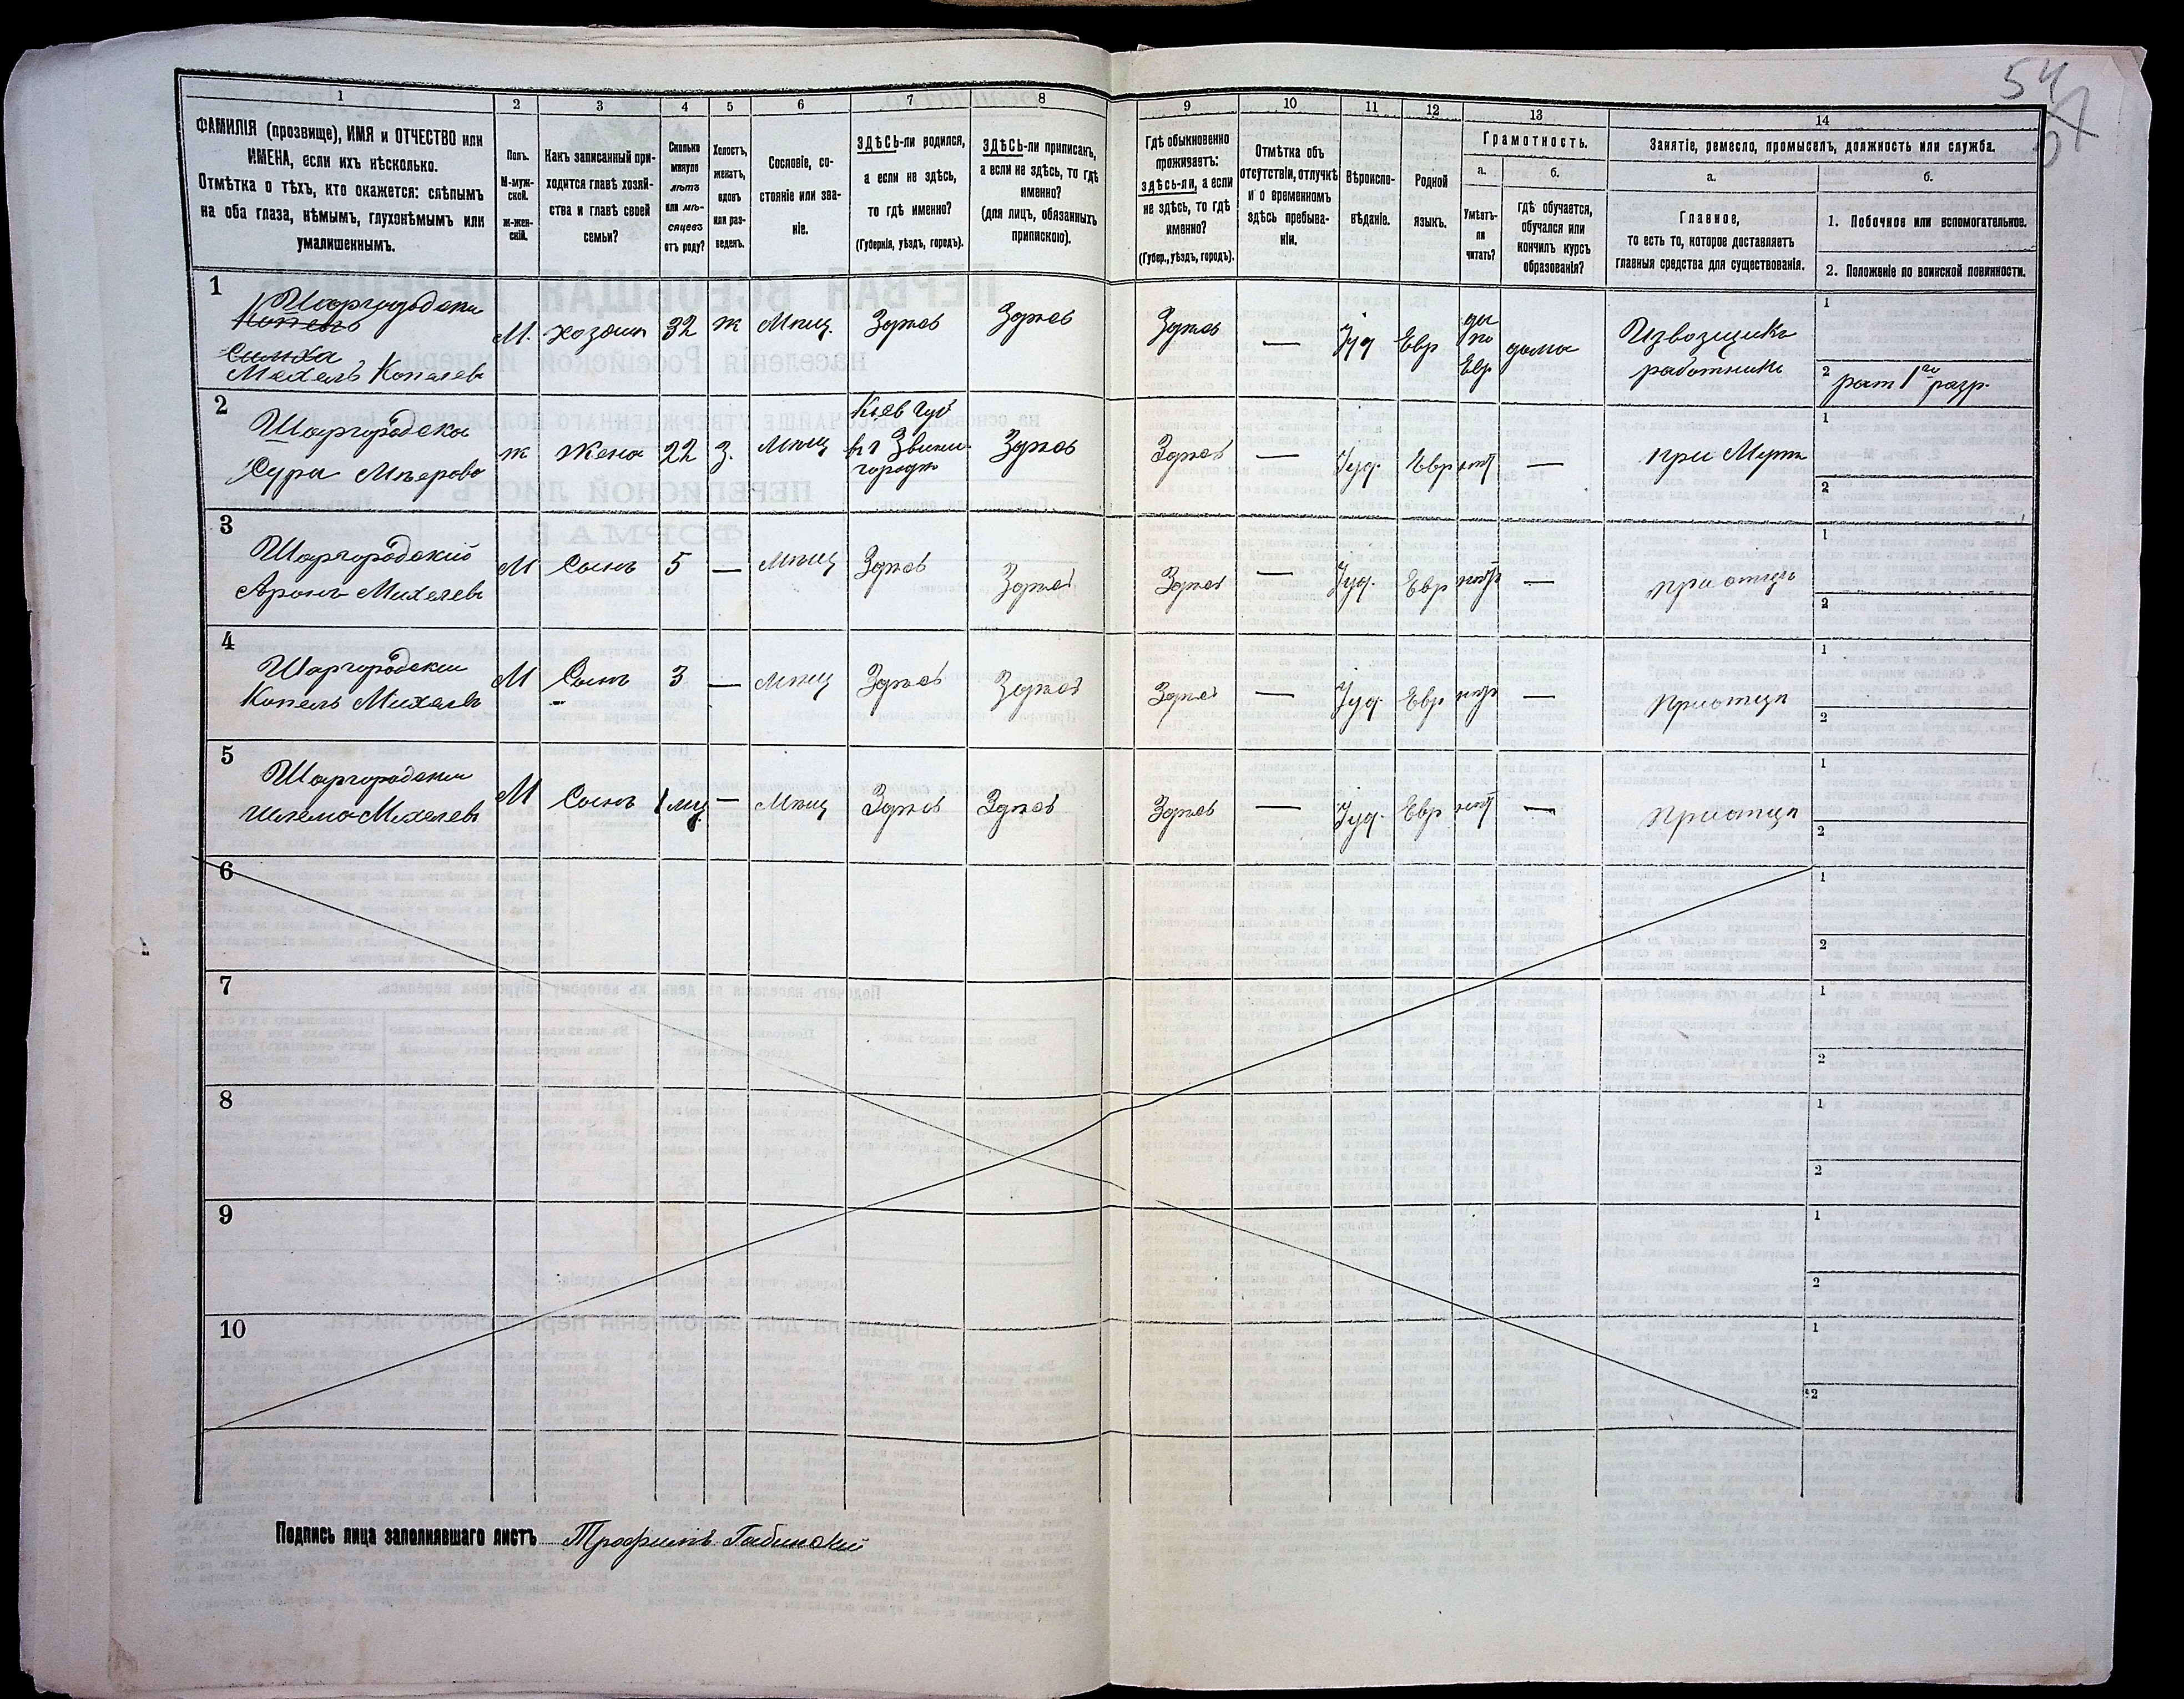 54
1
2
3
4
5
6
7
8
9
10
11
12
13
14
ФАМИЛІЯ (прозвище), ИМЯ и ОТЧЕСТВО или
ИМЕНА, если ихъ нѣсколько.
Отмѣтка о тѣхъ, кто окажется: слѣпымъ
на оба глаза, нѣмымъ, глухонѣмымъ или
умалишеннымъ.
Полъ.
М-муж-
ской.
Ж-жен-
скій.
Какъ записанный при-
ходится главѣ хозяй-
ства и главѣ своей
семьи?
Сколько
минуло
лѣтъ
или мѣ-
сяцевъ
отъ роду?
Холостъ,
женатъ,
вдовъ
или раз-
веденъ.
Сословіе, со-
стояніе или зва-
ніе.
ЗДѢСЬ-ли родился,
а если не здѣсь,
то гдѣ именно?
(Губернія, уѣздъ, городъ).
ЗДѢСЬ-ли приписанъ,
а если не здѣсь, то гдѣ
именно?
(для лицъ, обязанныхъ
припискою).
Гдѣ обыкновенно
проживаетъ:
здѣсь-ли, а если
не здѣсь, то гдѣ
именно?
(Губер., уѣздъ, городъ).
Отмѣтка объ
отсутствіи, отлучкѣ
и о временномъ
здѣсь пребыва-
ніи.
Вѣроиспо-
вѣданіе.
Родной
языкъ.
Грамотность.
а.
б.
Умѣетъ-
ли
читать?
гдѣ обучается,
обучался или
кончилъ курсъ
образованія?
Занятіе, ремесло, промыселъ, должность или служба.
а.
б.
Главное,
то есть то, которое доставляетъ
главныя средства для существованія.
1. Побочное или вспомогательное.
2. Положеніе по воинской повинности.
1
Шаргородски
Копель
Симха
Мехель Копелевъ
М. хозяин 32 ж Мѣщ. Здѣсь Здѣсь Здѣсь — Іуд Евр
да
по
Евр
дома
Извозщикъ
работникъ
1
2 рат 1го разр.
2
Шаргородска
Сура Меерова
ж Жена 22 З. Мѣщ
Кіев губ
въ г Звени-
городк
Здѣсь Здѣсь — Іуд. Евр нѣт — при Мужѣ
1
2
3
Шаргородскій
Аронъ Михелевъ
М Сынъ 5 — Мѣщ Здѣсь Здѣсь Здѣсь — Іуд. Евр нѣтъ — при отцѣ
1
2
4
Шаргородски
Копель Михелевъ
М Сынъ 3 — Мѣщ Здѣсь Здѣсь Здѣсь — Іуд. Евр нѣтъ — При отцѣ
1
2
5
Шаргородски
Шлема Михелевъ
М Сынъ 1 мц — Мѣщ Здѣсь Здѣсь Здѣсь — Іуд. Евр нѣт — При отцѣ
1
2
6
1
2
7
1
2
8
1
2
9
1
2
10
1
2
Подпись лица заполнявшаго листъ Трофимъ Габинскій